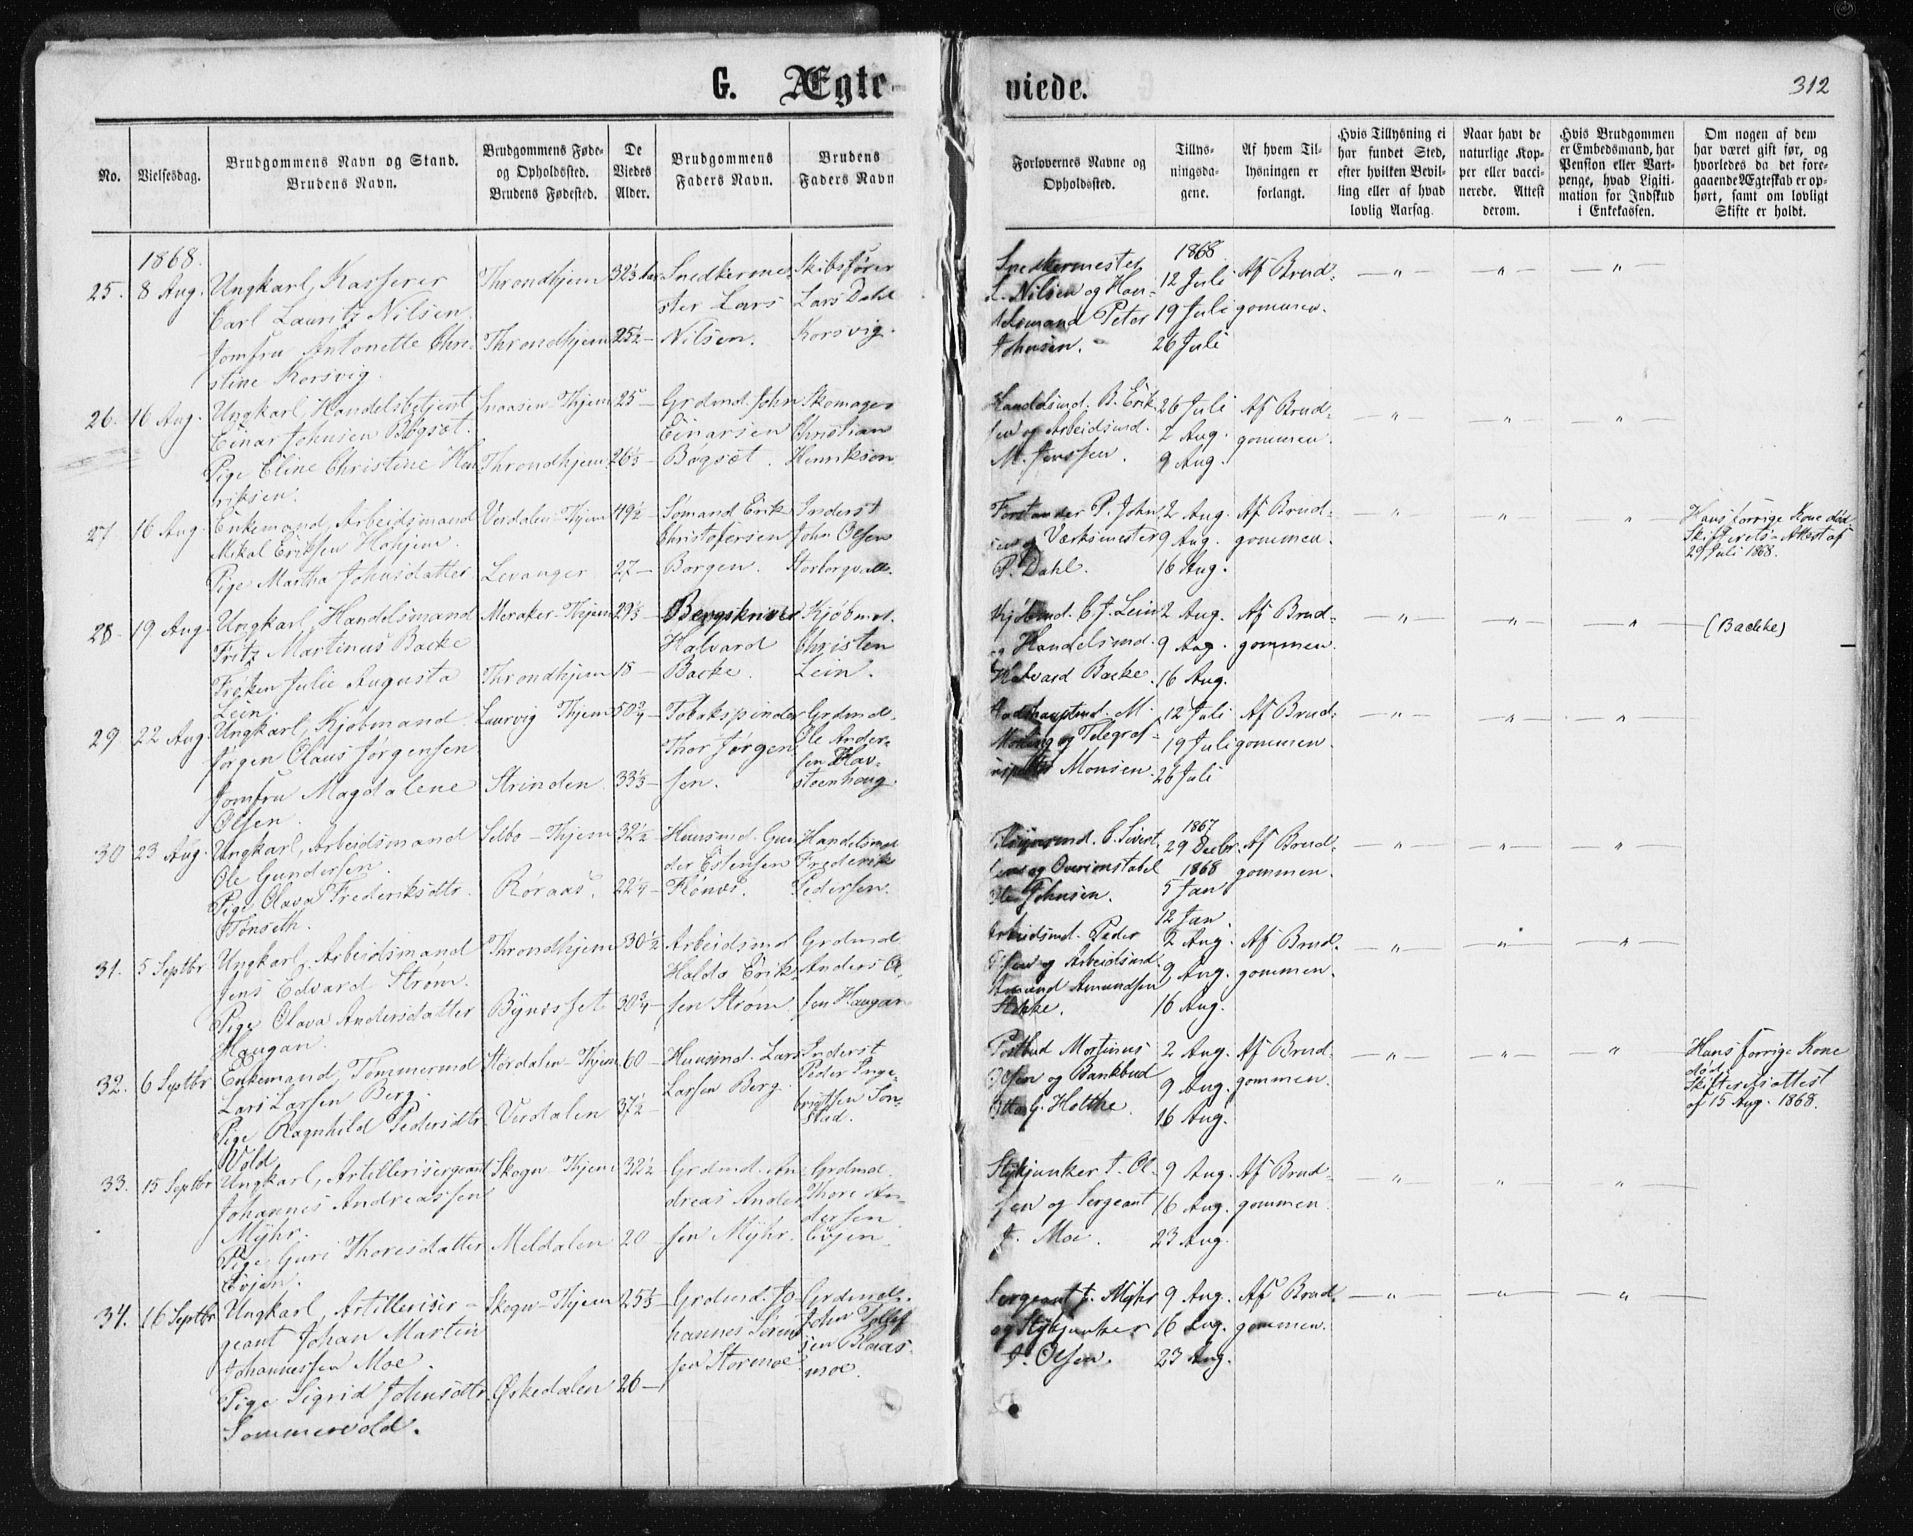 G. Ægte-
viede.
312
No.
Vielsesdag.
Brudgommens Navn og Stand.
Brudens Navn.
Brudgommens Føde-
og Opholdssted.
Brudens Fødested.
De
Viedes
Alder.
Brudgommens
Faders Navn.
Brudens
Faders Navn
Forlovernes Navne og
Opholdssted.
Tillys-
ningsda-
gene.
Af hvem Til-
lysningen er
forlangt.
Hvis Tillysning ei
har fundet Sted,
efter hvilken Bevil-
ling eller af hvad
lovlig Aarsag.
Naar havt de
naturlige Kop-
per eller vacci-
nerede. Attest
derom.
Hvis Brudgommen
er Embedsmand, har
Pension eller Vart-
penge, hvad Ligiti-
mation for Indskud
i Enkekassen.
Om nogen af dem
har været gift før, og
hvorledes da det fore-
gaaende Ægteskab er op-
hørt, samt om lovligt
Skifte er holdt.
1868.
25. 8 Aug.
Ungkarl, Kasserer
Carl Lauritz Nilsen.
Jomfru Antonette Chri
stine Korsvig.
Throndhjem
Throndhjem
25½ —
Snedkermes-
ster Lars
Nilsen.
Skibsfører
Lars Dahl
Korsvig.
Snedkermester
L. Nilsen og Han-
delsmand Peter
Johnsen.
1868
12 Juli
19 Juli
26 Juli
Af Brud-
gommen.
— „ — — „ — — „ —
26. 16 Aug.
Ungkarl, Handelsbetjent
Einar Johnsen Bøgset.
Pige Eline Christine Hen
riksen.
Snaasen - Thjem
Throndhjem
25 —
Grdmd. John
Einarsen
Bøgset.
Skomager
Christian
Henriksen
Handelsmd. B. Erik-
sen og Arbeidsmd.
M. Jenssen.
26 Juli
2 Aug.
9 Aug.
Af Brud-
gommen.
— „ — — „ — — „ —
27. 16 Aug.
Enkemand, Arbeidsmand
Mikal Eriksen
Pige Martha Johnsdatter
Verdalen - Thjem
Levanger
49½
27 —
Sømand Erik
Christofersen
Borgen.
Inderst
John Olsen
Forstander P. John
sen og Værksmester
P. Dahl.
2 Aug.
9 Aug.
16 Aug.
Af Brud-
gommen.
— „ — — „ — — „ —
Hans forrige Kone død-
Skifterets-Attest af
29 Juli 1868.
28. 19 Aug.
Ungkarl, Handelsmand
Fritz Martinus Backe
Frøken Julie Augusta
Lein.
Meraker - Thjem
Throndhjem
18 —
Bergskriver
Halvard
Backe.
Kjøbmd.
Christen
Lein.
Kjøbmd. C. J. Lein
og Handelsmd.
Halvard Backe.
2 Aug.
9 Aug.
16 Aug.
Af Brud-
gommen.
— „ — — „ — — „ —
(Backke)
29 22 Aug.
Ungkarl, Kjøbmand
Jørgen Olaus Jørgensen
Jomfru Magdalene
Olsen.
Laurvig Thjem
Strinden.
50¾ —
33⅓ —
Tobakspinder
Thor Jørgen
sen.
Grdmd.
Ole Ander-
sen Hav-
steenhaug.
og Telegraf-
Monsen.
12 Juli
19 Juli
26 Juli
Af Brud-
gommen.
— „ — — „ — — „ —
30 23 Aug.
Ungkarl, Arbeidsmand
Ole Gundersen.
Pige Olava Frederiksdtr.
Tønseth.
Selbo - Thjem
Røraas.
32½ —
22¼ —
Huusmd. Gun
der Estensen
Flønæs.
Handelsmd
Frederik
Pedersen.
C. Sivert-
sen og Overconstabel
Johnsen.
1867
29 Decbr.
1868
5 Jan
12 Jan
Af Brud-
gommen.
— „ — — „ — — „ —
31. 5 Septbr
Ungkarl, Arbeidsmand
Jens Edvard Strøm.
Pige Olava Andersdatter
Haugan.
Throndhjem
Bynesset
30½
30¾ —
Arbeidsmd
Haldo Erik-
sen Strøm
Grdmd
Anders Ol-
sen Haugan
Arbeidsmd. Peder
Olsen og Arbeidsmd.
Amund Amundsen
2 Aug.
9 Aug.
16 Aug.
Af Brud-
gommen.
— „ — — „ — — „ —
32. 6 Septbr
Enkemand, Tømmermd
Lars Larsen Berg.
Pige Ragnhild Pedersdtr
Wold
Størdalen - Thjem
Verdalen
60 —
37½ —
Huusmd. Lars
Larsen Berg.
Inderst
Peder Inge-
brigtsen Søn-
stad.
Postbud Martinus
Olsen og Bankbud
Holthe.
2 Aug.
9 Aug.
16 Aug.
Af Brud-
gommen.
— „ — — „ — — „ —
Hans forrige Kone
død.
Skifteretsattest
af 15 Aug. 1868.
33. 15 Septbr
Ungkarl, Artillerisergeant
Johannes Andreassen
Myhr.
Pige Guri Thoresdatter
Evjen.
Skogn - Thjem
Meldalen
32½ —
20 —
Grdmd. An-
dreas Ander
sen Myhr.
Grdmd.
Thore An-
dersen
Evjen.
Stykjunker J. Ol-
sen og Sergeant
J. Moe.
9 Aug.
16 Aug.
23 Aug.
Af Brud-
gommen.
— „ — — „ — — „ —
34. 16 Septbr
Ungkarl, Artilleriser-
geant Johan Martin
Johannessen Moe.
Pige Sigrid Johnsdtr.
Sommervold.
Skogn - Thjem
Øxkedalen
26 —
Grdmd. Jo-
hannes Søren
sen Stormoe
Grdmd.
John Tollef
sen Blaas-
moe.
Sergeant J. Myhr
og Stykjunker
J. Olsen.
9 Aug.
16 Aug.
23 Aug.
Af Brud-
gommen.
— „ — — „ — — „ —